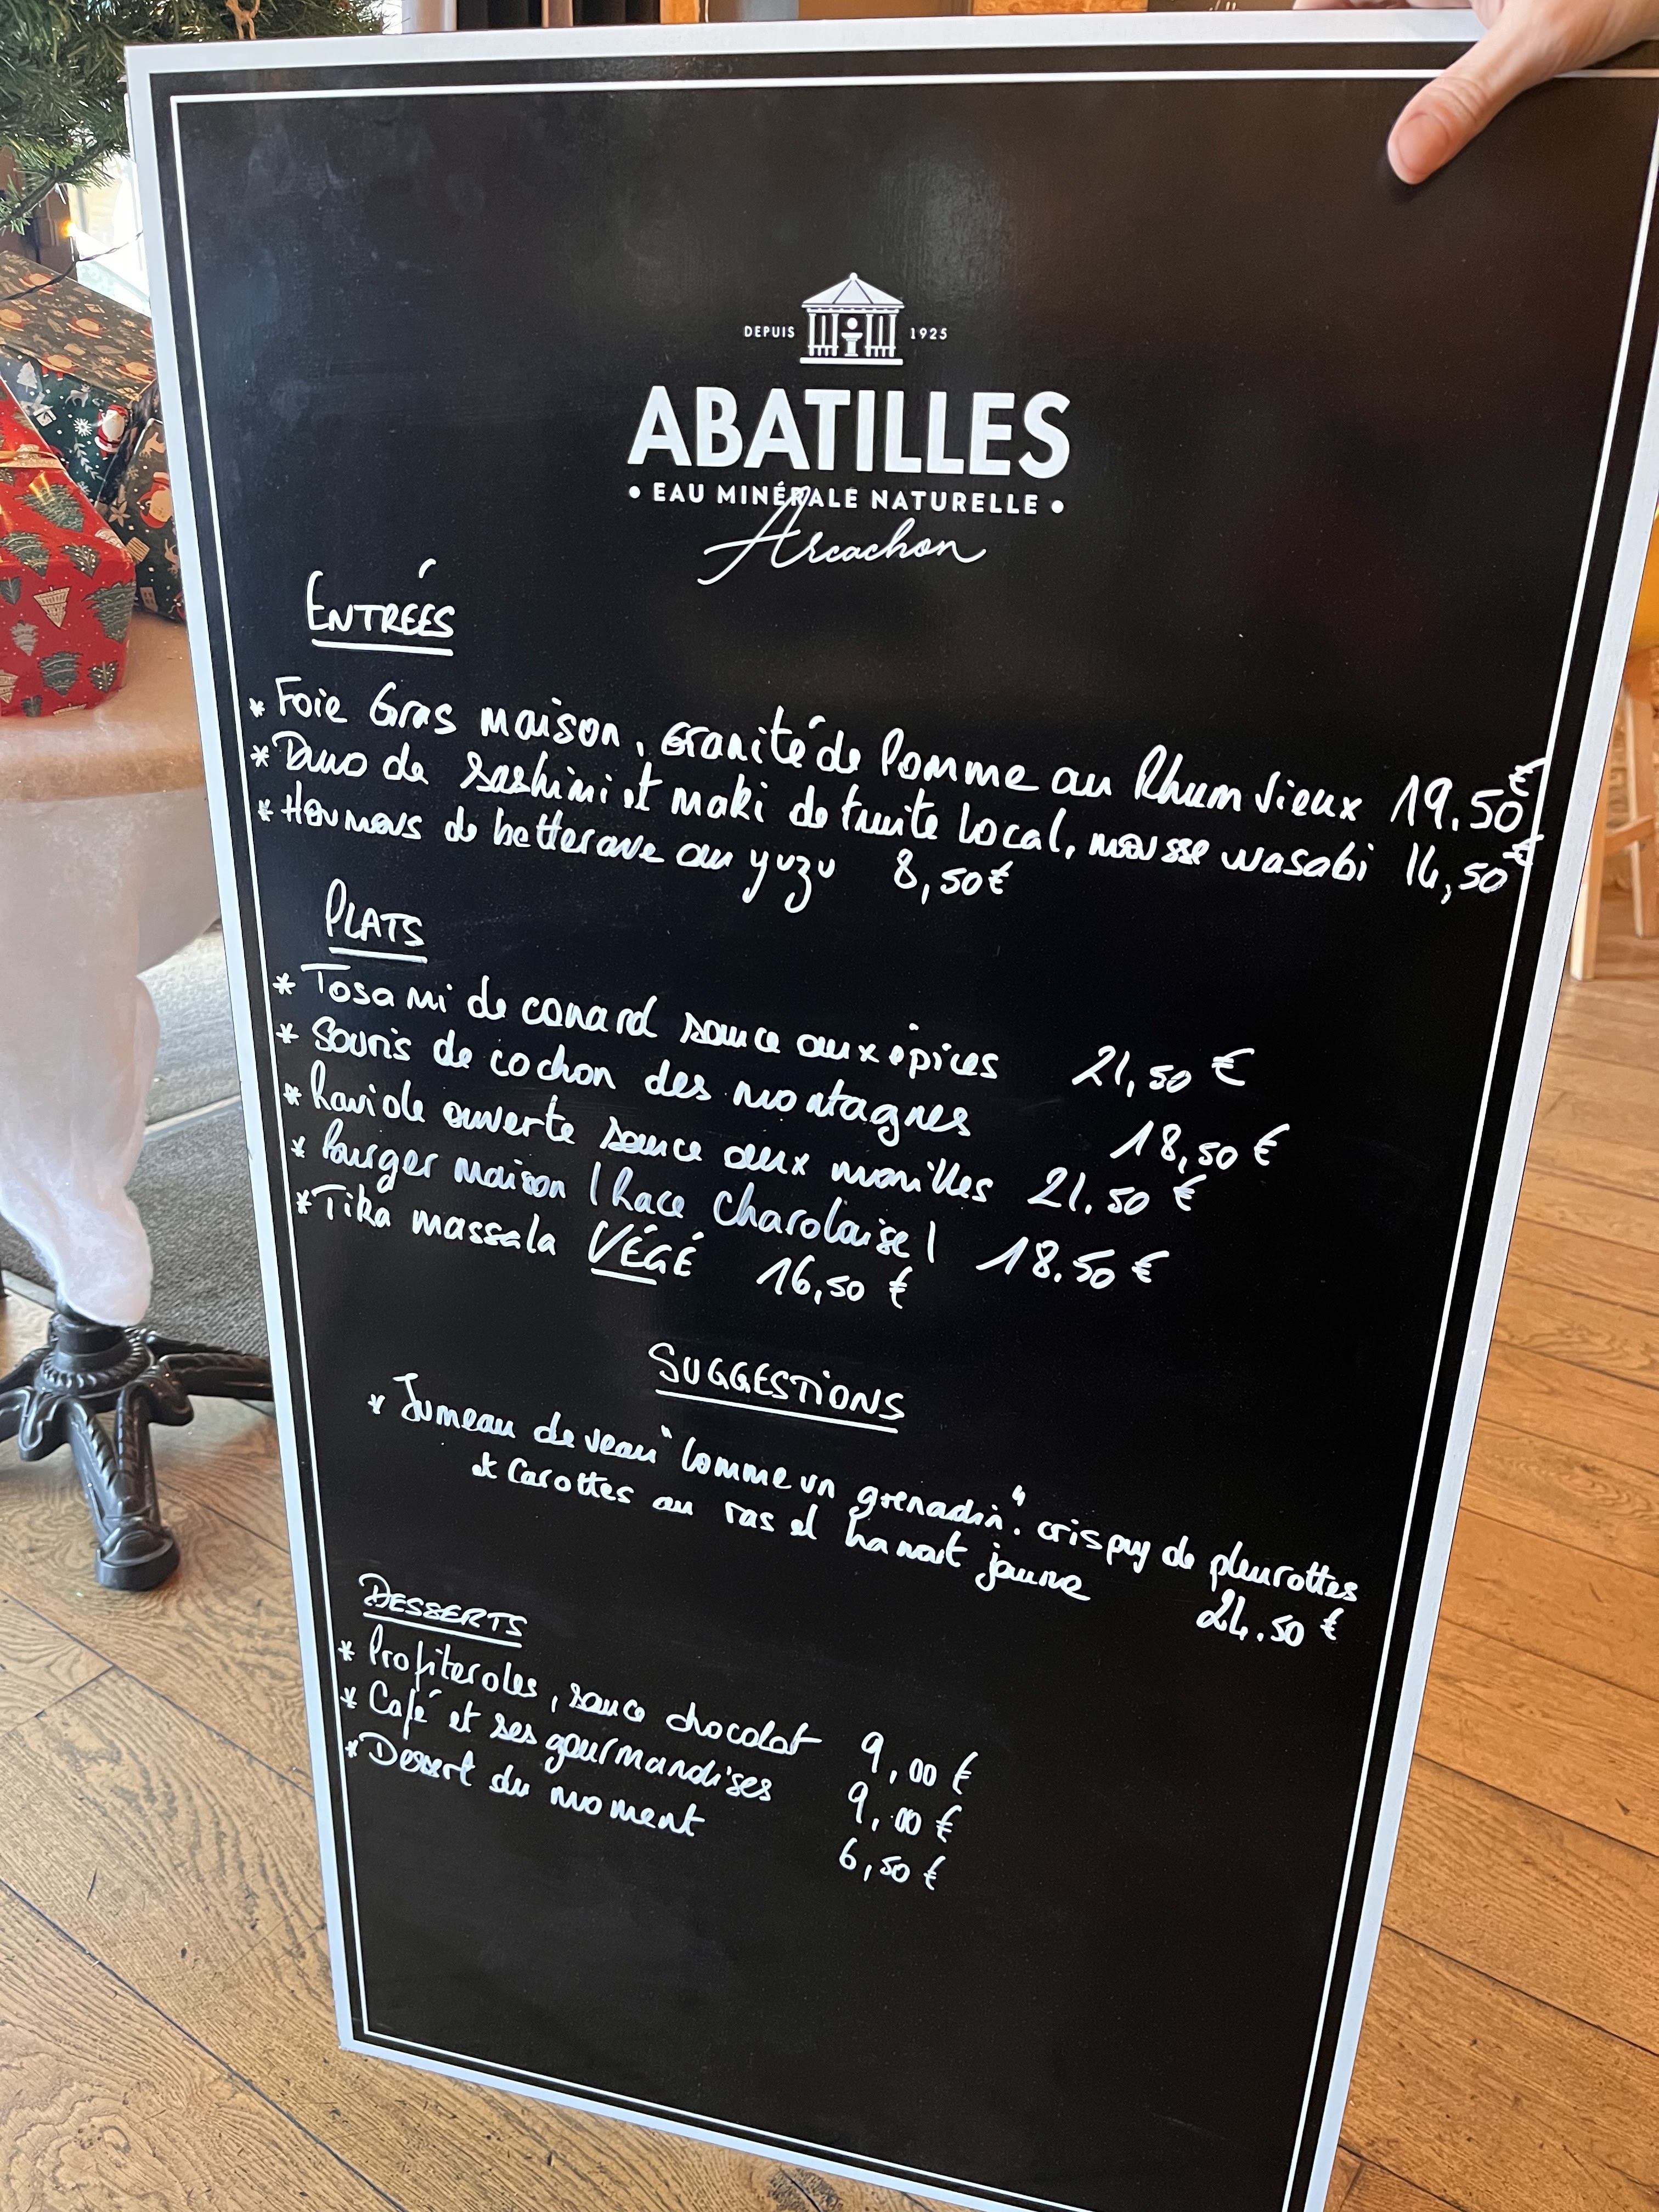 DEPUIS 1925
ABATILLES
• EAU MINÉRALE NATURELLE •
Arcachon
ENTRÉES
* Foie Gras maison, Granité de Pomme au Rhum Vieux 19.50€
* Duo de sashimi et maki de truite local, mousse wasabi 14,50€
* Houmous de betterave au yuzu 8,50€
PLATS
* Tosami de canard sauce aux épices 21,50 €
* Souris de cochon des montagnes 18,50 €
* Raviole ouverte sauce aux morilles 21.50 €
* Burger maison (Race Charolaise) 18.50 €
* Tika massala VÉGÉ 16,50 €
SUGGESTIONS
* Jumeau de veau "Comme un grenadin". crispy de pleurottes
et Carottes au ras el hanout jaune 24.50 €
DESSERTS
* Profiteroles, sauce chocolat 9,00 €
* Café et ses gourmandises 9,00 €
* Dessert du moment 6,50 €